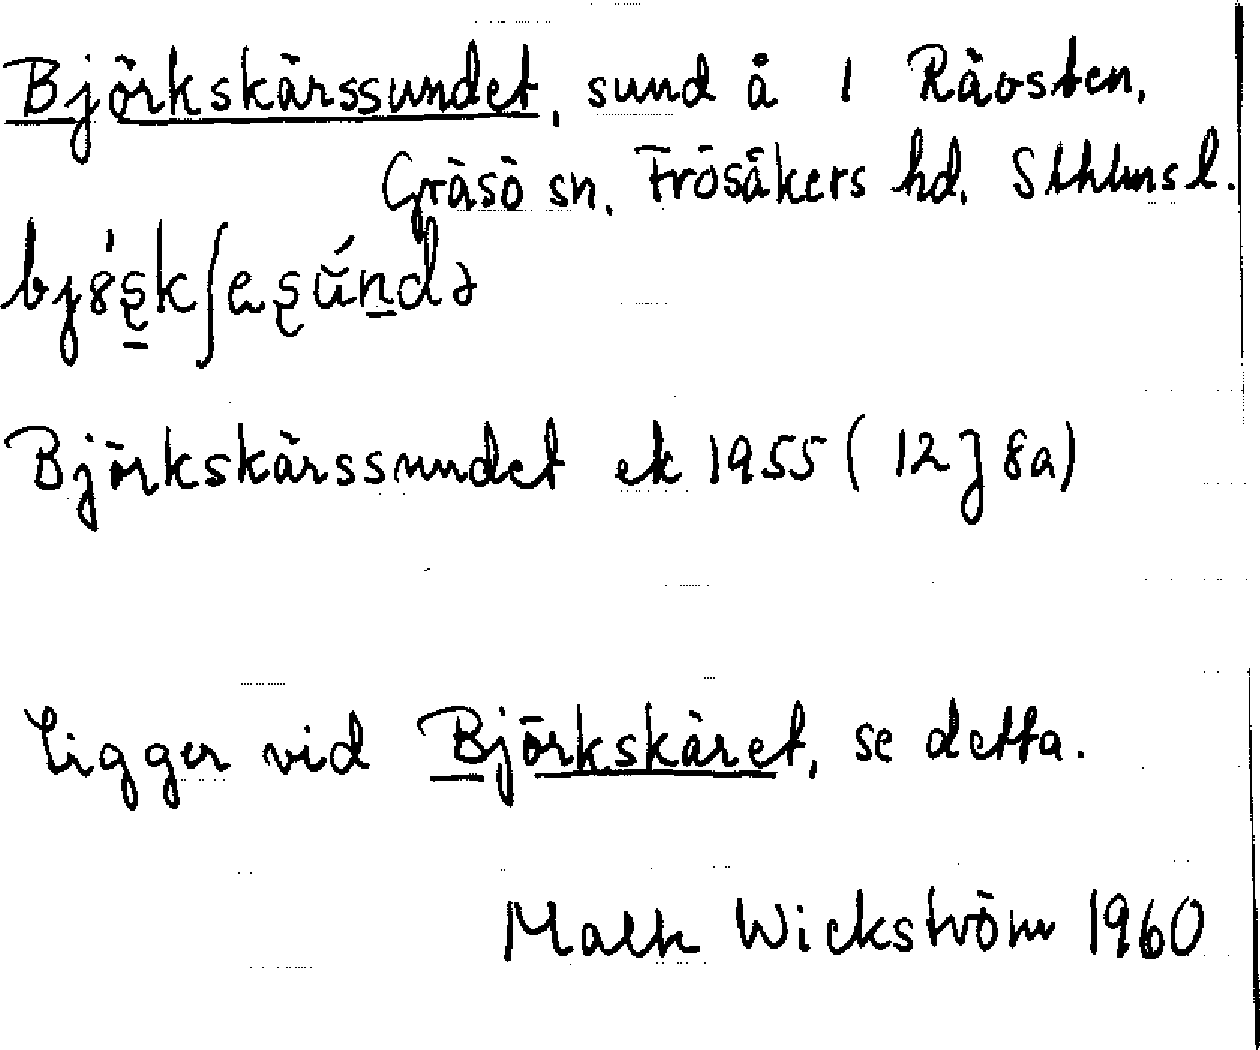 Björkskärssundet, sund å 1 Råosten,
Gräsö sn. Frösåkers hd. Sthlms l.
Björkskärssundet ek 1955 (12J 8a)
Ligger vid Björkskäret, se detta.
Wickström 1960